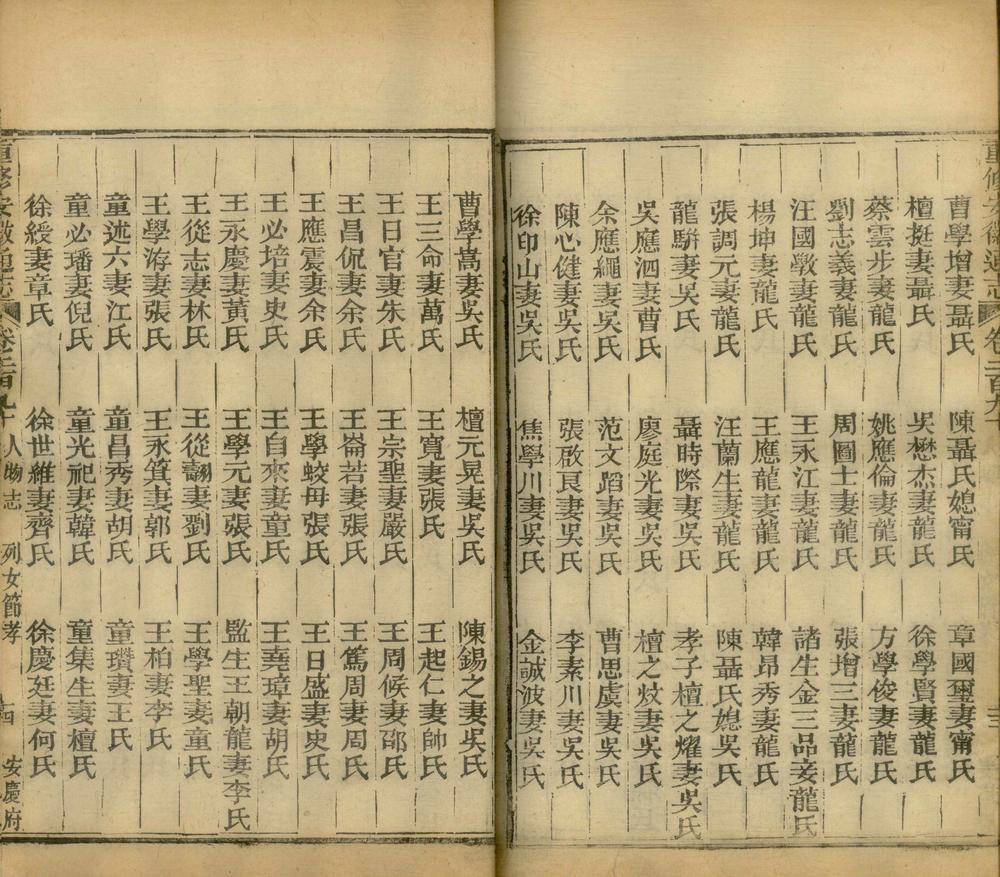 重修安徽通志 卷二百九十
曹學增妻聶氏 陳聶氏媳甯氏 章國璽妻甯氏
檀挺妻聶氏 吳懋杰妻龍氏 徐學賢妻龍氏
蔡雲步妻龍氏 姚應倫妻龍氏 方學俊妻龍氏
劉志義妻龍氏 周圖士妻龍氏 張增三妻龍氏
汪國斆妻龍氏 王永江妻龍氏 諸生金三品妾龍氏
楊坤妻龍氏 王應龍妻龍氏 韓昂秀妻龍氏
張調元妻龍氏 汪蘭生妻龍氏 陳聶氏媳吳氏
龍騈妻吳氏 聶時際妻吳氏 孝子檀之燿妻吳氏
吳應泗妻曹氏 廖庭光妻吳氏 檀之炆妻吳氏
余應繩妻吳氏 范文蹈妻吳氏 曹思虞妻吳氏
陳心健妻吳氏 張啟艮妻吳氏 李素川妻吳氏
徐印山妻吳氏 焦學川妻吳氏 金誠波妻吳氏
曹學嵩妻吳氏 檀元晃妻吳氏 陳錫之妻吳氏
王三命妻萬氏 王寬妻張氏 王起仁妻帥氏
王日官妻朱氏 王宗聖妻嚴氏 王周候妻邵氏
王昌侃妻余氏 王崙若妻張氏 王篤周妻周氏
王應震妻余氏 王學蛟母張氏 王日盛妻史氏
王必培妻史氏 王自來妻童氏 王堯璋妻胡氏
王永慶妻黃氏 王學元妻張氏 監生王朝龍妻李氏
王從志妻林氏 王從翿妻劉氏 王學聖妻童氏
王學游妻張氏 王永箕妻郭氏 王柏妻李氏
童述六妻江氏 童昌秀妻胡氏 童瓚妻王氏
童必璠妻倪氏 童光祀妻韓氏 童集生妻檀氏
徐綬妻章氏 徐世維妻齊氏 徐慶廷妻何氏
重修安徽通志 卷二百九十 人物志 列女節孝 四 安慶府